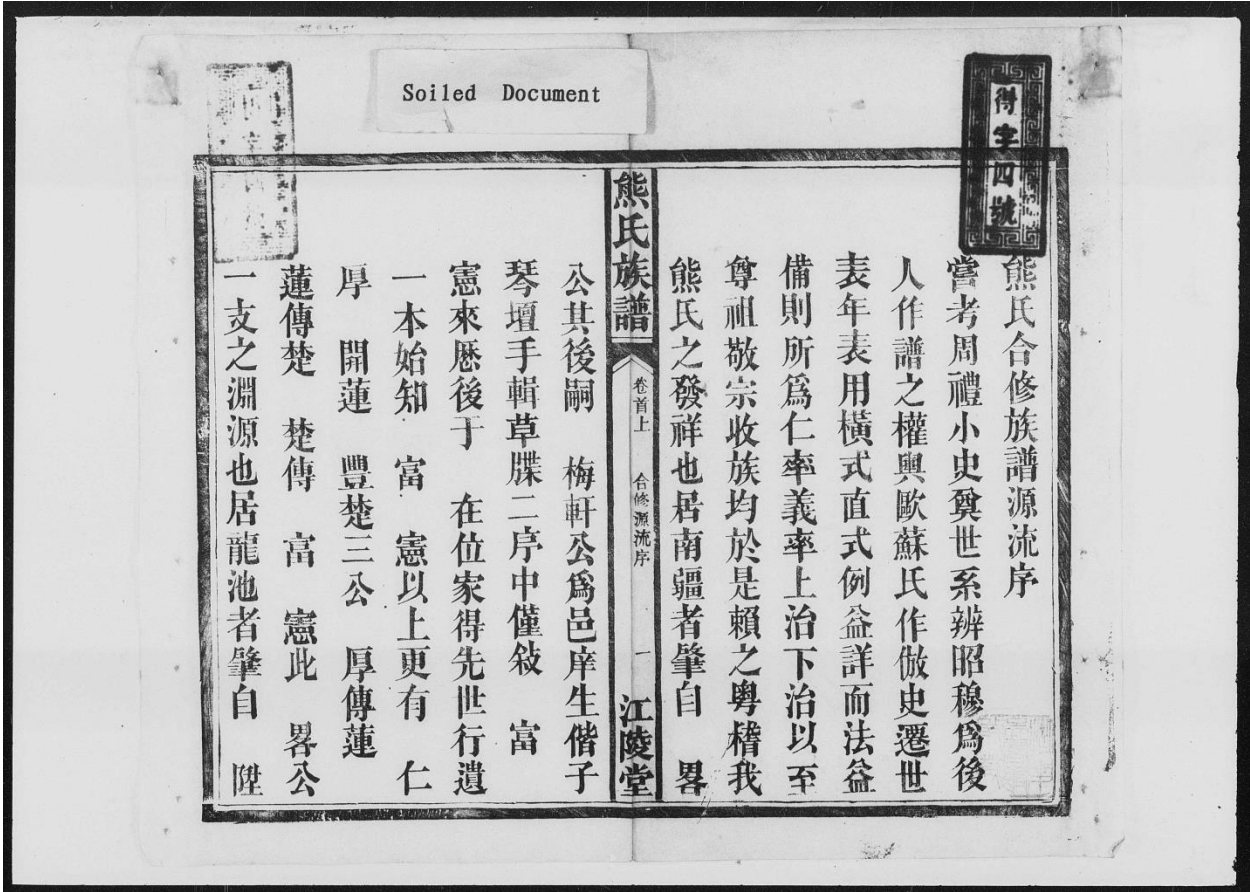 Soiled Document
得字四號
熊氏合修族譜源流序
嘗考周禮小史奠世系辨昭穆爲後
人作譜之權輿歐蘇氏作倣史遷世
表年表用橫式直式例益詳而法益
備則所爲仁率義率上治下治以至
尊祖敬宗收族均於是賴之粤稽我
熊氏之發祥也居南疆者肇自　畧
熊氏族譜　卷首上　合修源流序　一　江陵堂
公其後嗣　梅軒公爲邑庠生偕子
琴壇手輯草牒二序中僅敍　富
憲來歷後于　在位家得先世行遺
一本始知　富　憲以上更有　仁
厚　開蓮　豐楚三公　厚傳蓮
蓮傳楚　楚傳　富　憲此　畧公
一支之淵源也居龍池者肇自　陞